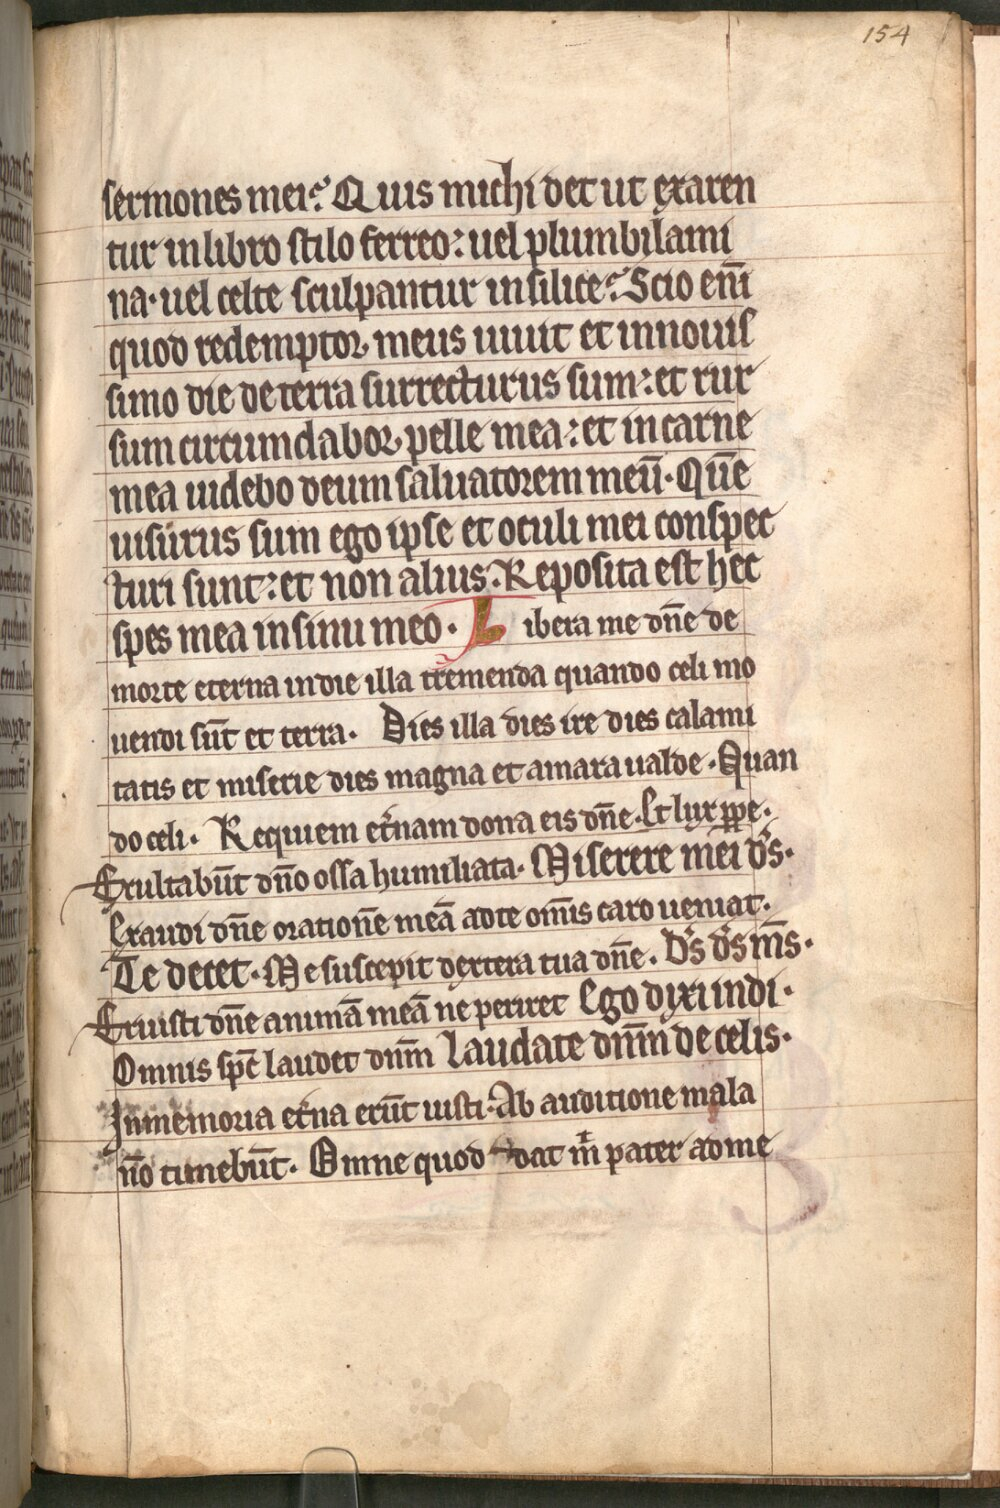 154
sermones mei? Quis michi det ut exaren
tur in libro stilo ferreo: uel plumbi lami
na· uel celte sculpantur in silice? Scio eni̅
quod redemptor meus uiuit et in nouis
simo die de terra surrecturus sum: et rur
sum circumdabor pelle mea: et in carne
mea uidebo deum saluatorem meu̅· Que̅
uisurus sum ego ipse et oculi mei conspec
turi sunt: et non alius. Reposita est hec
spes mea in sinu meo· Libera me dn̅e de
morte eterna in die illa tremenda quando celi mo
uendi su̅t et terra· Dies illa dies ire dies calami
tatis et miserie dies magna et amara ualde· Quan
do celi· Requiem et̅nam dona eis dn̅e· Et lux ꝑpe·
Exultabu̅t dn̅o ossa humiliata· Miserere mei d̅s·
Exaudi dn̅e oratione̅ mea̅ ad te om̅is caro ueniat·
Te decet· Me suscepit dextera tua dn̅e· D̅s d̅s m̅s·
Eruisti dn̅e anima̅ mea̅ ne periret Ego dixi in di·
Omnis sp̅c laudet dn̅m Laudate dn̅m de celis·
In memoria et̅na eru̅t iusti· Ab auditione mala
no̅ timebu̅t· Omne quod dat m̅ pater ad me